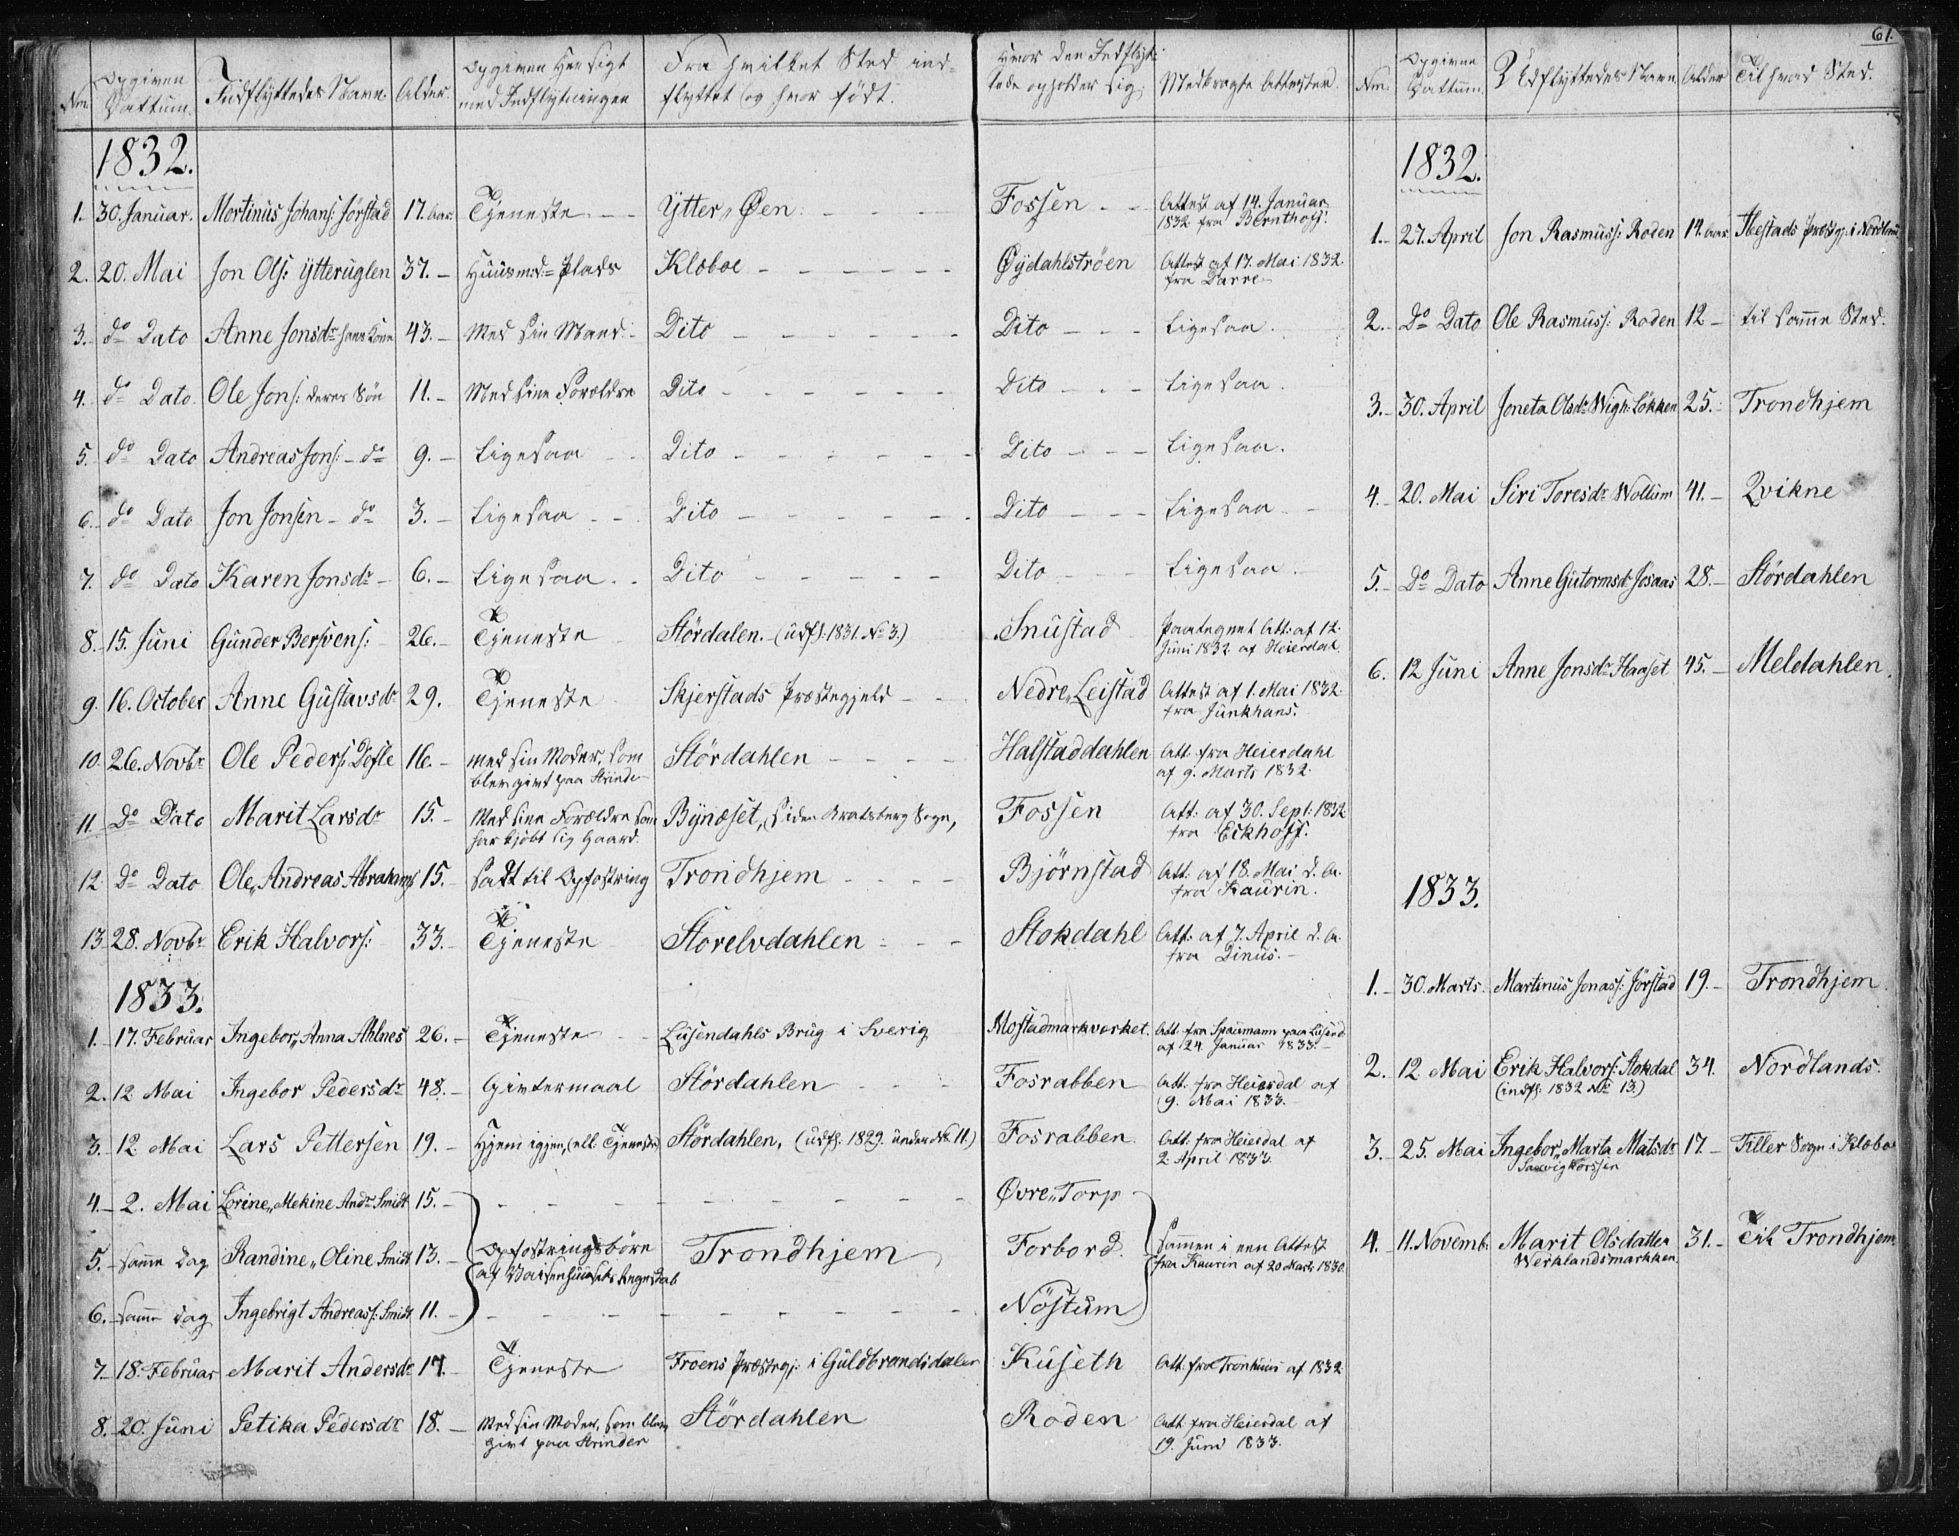 61.
Nm. Opgiven Dattum. Indflyttedes Navn. Alder. Opgiven Hensigt med Indflytningen Fra hvilket Sted ind-flyttet og hvor født. Hvor den Indflyt-tede opholder sig. Medbragte Attester.
1832.
1. 30. Januar. Mortinus Johans: Jørstad 17. aar Tjeneste Ytter„Øen Fossen Attest af 14. Januar 1832 fra Bernthoff.
2. 20. Mai Jon Ols: Ytteruglen 37. Huusmd= Plads Klæboe Øydahlstrøen Attest af 17. Mai 1832. fra Darre
3. do Dato Anne Jonsdr hans Kone 43. Med sin Mand Dito Dito Ligesaa.
4. do Dato Ole Jons: deres Søn 11. Med sine Forældre Dito Dito Ligesaa.
5. do Dato Andreas Jons: do 9. Ligesaa Dito Dito Ligesaa.
6. do Dato Jon Jonsen do 3. Ligesaa Dito Dito Ligesaa
7. do Dato Karen Jonsdr 6. Ligesaa Dito Dito Ligesaa.
8. 15. Juni Gunder Bersvens: 26. Tjeneste Størdalen. (udfl. 1831. No 3.) Snustad Paategnet Att: af 12. Juni 1832 af Heierdal.
9. 16. October Anne Gustavsdr 29. Tjeneste Skjerstads Præstegjeld Nedre„Leistad Attest af 1. Mai 1832. fra Junkhans.
10. 26. Novbr Ole Peders: Dofle 16. med sin Moder, som blev givt paa Strinde Størdahlen Halstaddahlen Att. fra Heierdahl af 9. Marts 1832.
11. Do Dato Marit Larsdr 15. Med sine Forældre som har kjøbt sig Gaard. Bynæset, siden Bratsberg Sogn, Fossen Att: af 30. Sept: 1832 fra Eckhoff.
12. Do Dato Ole„Andreas Abrahams 15. Satt til Opfostring Trondhjem Bjørnstad Att: af 18. Mai d. A. fra Kaurin.
13. 28. Novbr Erik Halvors: 33. Tjeneste Storelvdahlen Stokdahl Att: af 7. April d. A. fra Dinus.
1833.
1. 17. Februar Ingebor„Anna Ahlnes 26. Tjeneste Lusendahls Brug i Sverig Mostadmarkværket. Att. fra Spaumann paa Lusend. af 24 Januar 1833.
2. 12 Mai Ingebor Pedersdr 48. Givtermaal Størdahlen Fosrabben Att. fra Heierdal af 9. Mai 1833.
3. 12 Mai Lars Pettersen 19. Hjem igjen, (ell. Tjeneste) Størdahlen, (udfl. 1829. under No. 11.) Fosrabben. Att. fra Heierdal af 2 April 1833.
4. 2. Mai Lorine„Mekine Andr Smidt 15. Øvre„Torp
5. samme dag Randine„Oline Smidt 13. Opfostringsbørn af Vaisenhuusets Trondhjem Forbord. sammen i een Attest fra Kaurin af 20 Marts 1830
6. samme dag Ingebrigt Andreass: Smidt 11. Nøstum
7. 18. Februar Marit Andersdr 17. Tjeneste Froens Præstegj: i Guldbrandsdalen Kuseth Att. fra Tronhuus af 1832
8. 20. Juni Petika Pedersdr 18. Med sin Moder, som blev givt paa Strinden Størdahlen Roden Att. fra Heierdal af 19. Juni 1833.
Nm. Opgivne Dattum. Udflyttedes Navn Alder Til hvad Sted.
1832.
1. 27. April Jon Rasmuss: Roden 14. aar Ibestads Præstgj. i Nordland
2. Do Dato Ole Rasmuss: Roden 12 til samme Sted.
3. 30. April Joneta Olsdr Wigh: Løkken 25. Trondhjem
4. 20. Mai Siri Toresdr Wollum 41. Qvikne
5. Do Dato Anne Gutormsdr Josaas 28. Størdahlen
6. 12 Juni Anne Jonsdr Haaset 45. Meldahlen.
1833.
1. 30. Marts. Martinus Jonass: Jørstad 19. Trondhjem.
2. 12 Mai Erik Halvors: Stokdal (indfl. 1832 No 13.) 34. Nordlands.
3. 25. Mai Ingebor„Marta Matsdr Saxvigkorssen 17. Tiller Sogn i Klæbo
4. 11. Novemb. Marit Olsdatter Werklandsmarkken. 31. Til Trondhjem